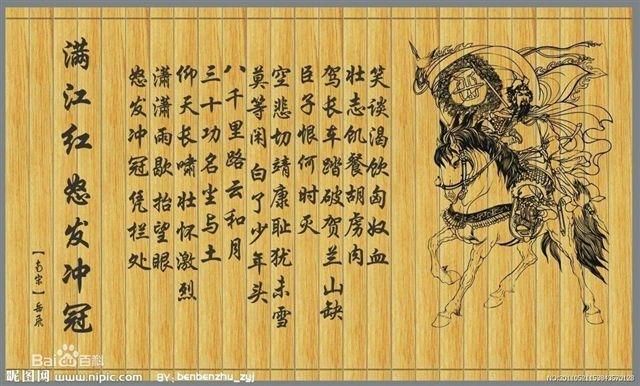 满江红怒发冲冠
【南宋】岳飞
怒发冲冠凭栏处
潇潇雨歇抬望眼
仰天长啸壮怀激烈
三十功名尘与土
八千里路云和月
莫等闲白了少年头
空悲切靖康耻犹未雪
臣子恨何时灭
驾长车踏破贺兰山缺
壮志饥餐胡虏肉
笑谈渴饮匈奴血
Bai百科
昵图网 www.nipic.com BY: benbenzhu_zyj